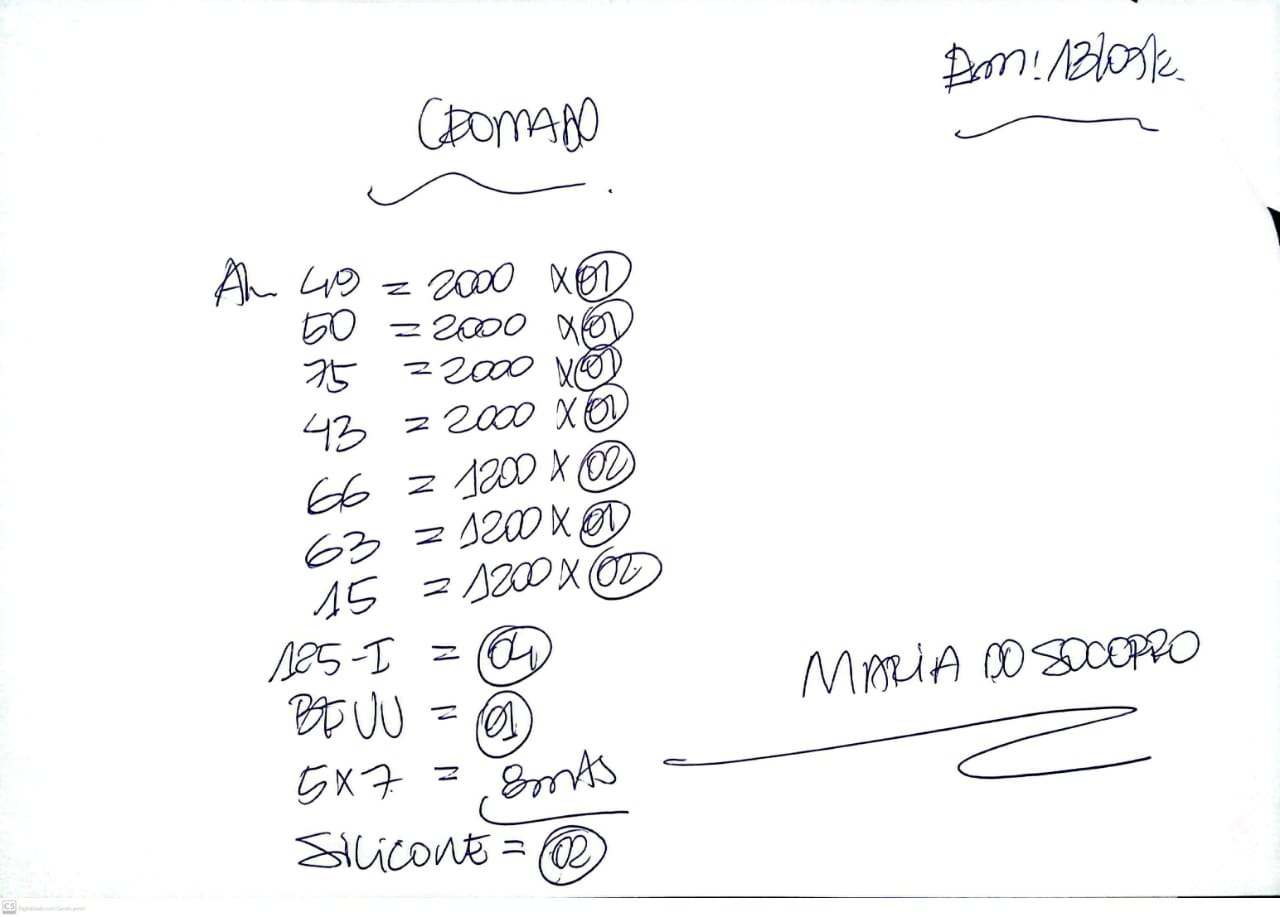 Em: 13/05/2
CROMADO
AL 49 = 2000 X 01
50 = 2000 X 01
75 = 2000 X 01
43 = 2000 X 01
66 = 1200 X 02
63 = 1200 X 01
15 = 1200 X 02
125-I = 04
= 01
5X7 = 8mAS
SILICONE = 02
MARIA DO SOCORRO
CS Digitalizado com CamScanner